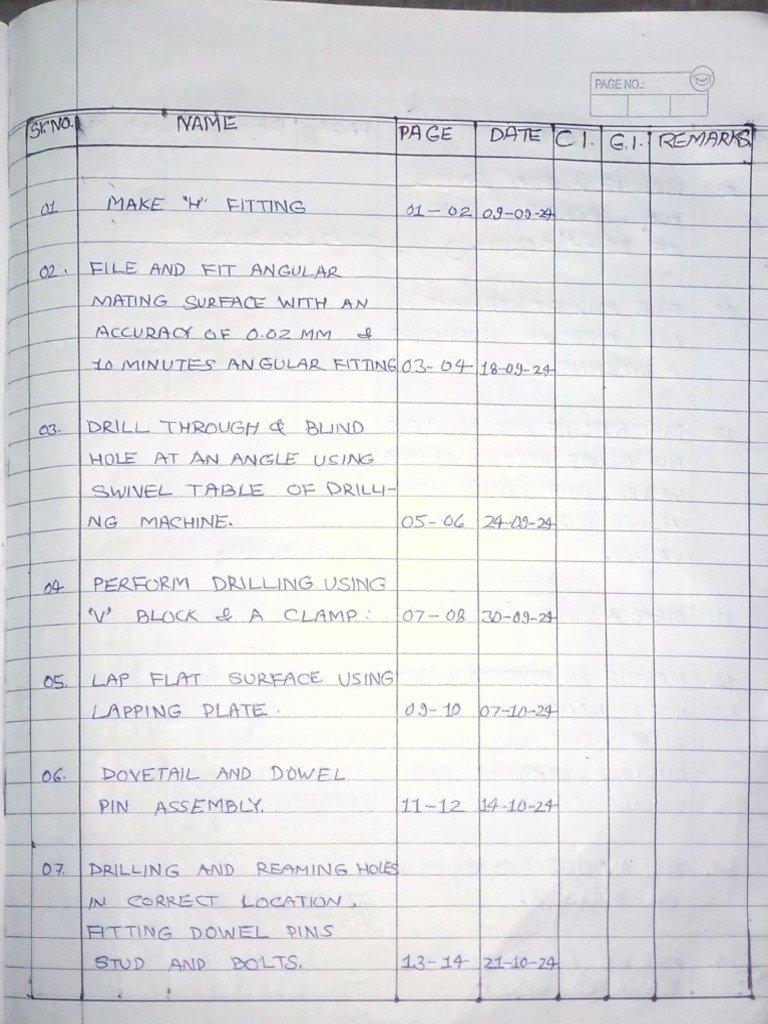 PAGE NO.:
Sr.NO. NAME PAGE DATE C.I. G.I. REMARKS
01 MAKE "H" FITTING 01-02 09-09-24
02. FILE AND FIT ANGULAR
MATING SURFACE WITH AN
ACCURACY OF 0.02 MM &
10 MINUTES ANGULAR FITTING 03-04 18-09-24
03. DRILL THROUGH & BLIND
HOLE AT AN ANGLE USING
SWIVEL TABLE OF DRILLI-
NG MACHINE. 05-06 24-09-24
04 PERFORM DRILLING USING
'V' BLOCK & A CLAMP: 07-08 30-09-24
05. LAP FLAT SURFACE USING
LAPPING PLATE. 09-10 07-10-24
06. DOVETAIL AND DOWEL
PIN ASSEMBLY. 11-12 14-10-24
07. DRILLING AND REAMING HOLES
IN CORRECT LOCATION,
FITTING DOWEL PINS
STUD AND BOLTS. 13-14 21-10-24